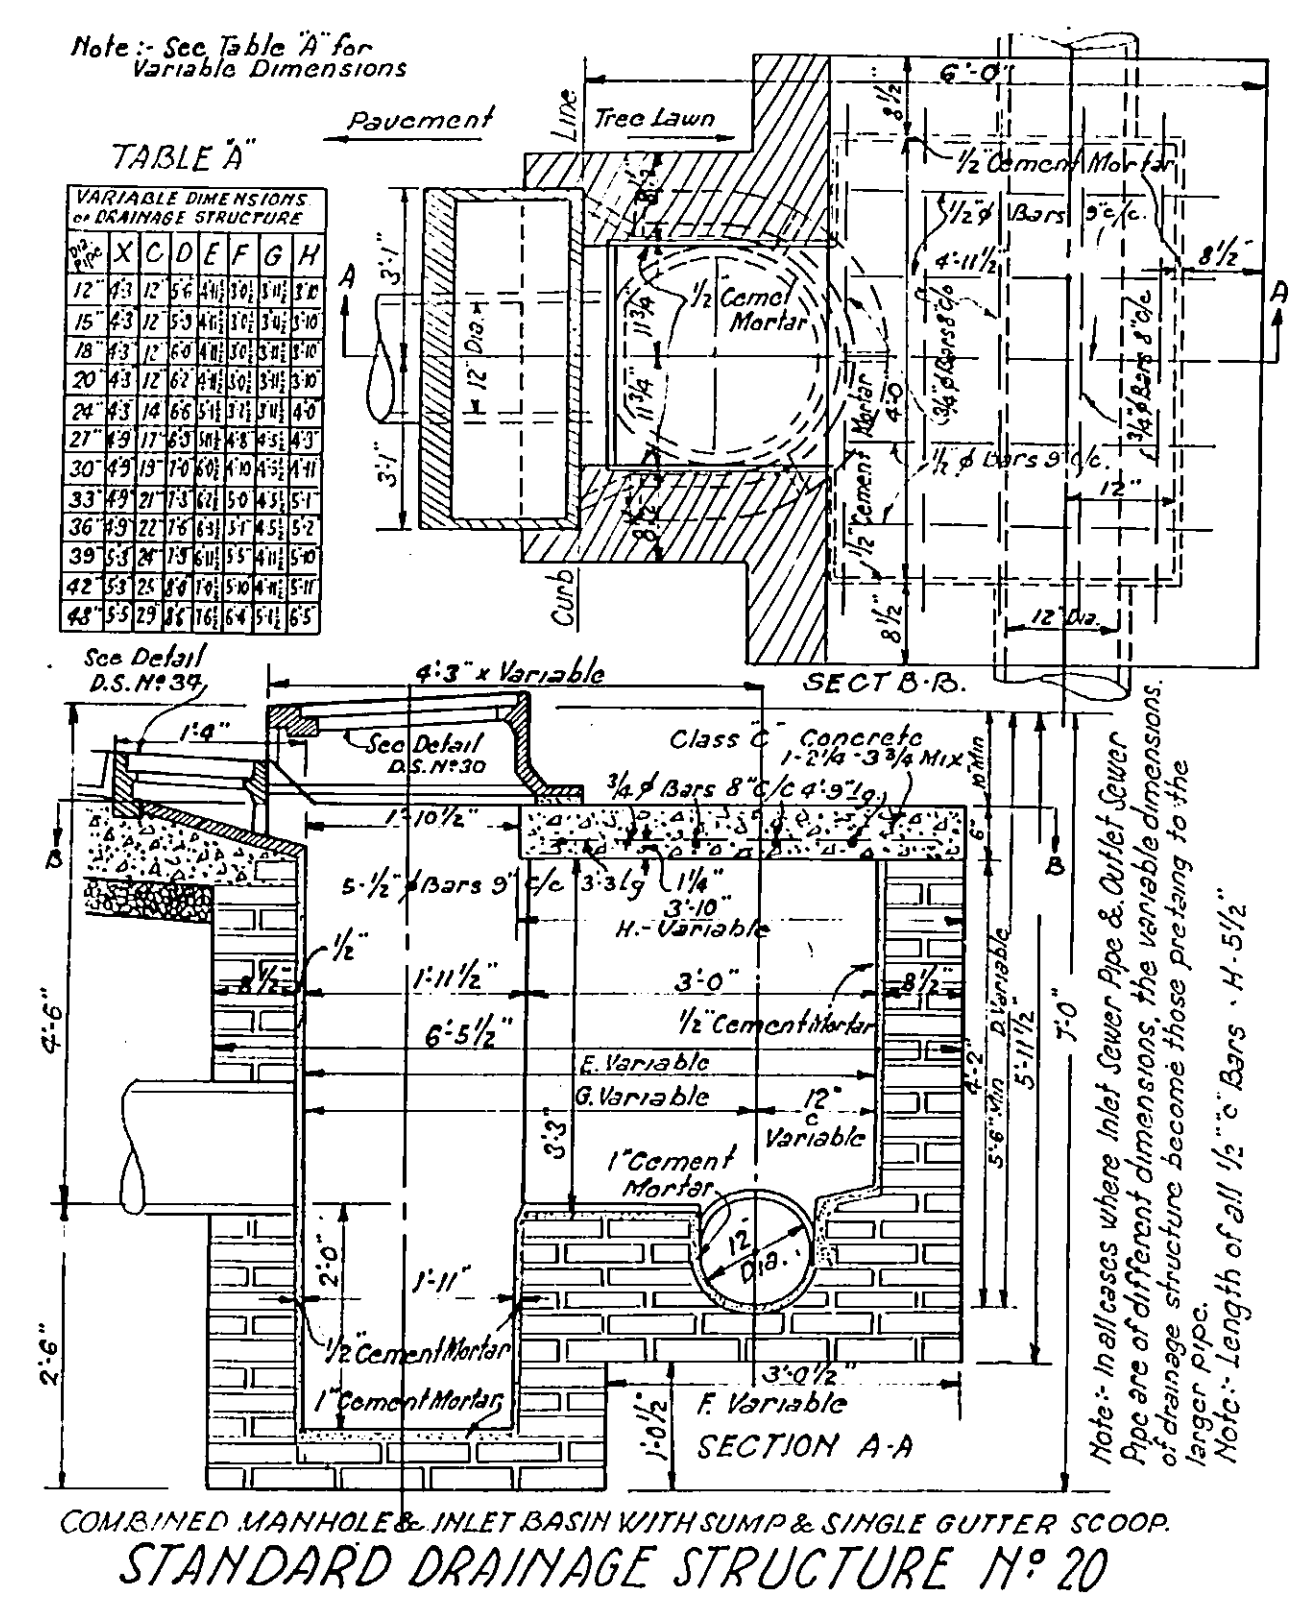 Note:- See Table "A" for
Variable Dimensions
Pavement
Line
Tree Lawn
6'-0"
8½"
TABLE "A"
VARIABLE DIMENSIONS
OF DRAINAGE STRUCTURE
Dia Pipe X C D E F G H
12" 4'3 12" 5'6 4'11½ 3'0½ 3'11½ 3'10
15" 4'3 12" 5'9 4'11½ 3'0½ 3'11½ 3'10
18" 4'3 12" 6'0 4'11½ 3'0½ 3'11½ 3'10
20" 4'3 12" 6'2 4'11½ 3'0½ 3'11½ 3'10
24" 4'3 14" 6'6 5'1½ 3'2½ 3'11½ 4'0
27" 4'9 17" 6'9 4'8 4'5½ 4'9
30" 4'9 19" 7'0 6'0½ 4'10 4'5½ 4'11
33" 4'9 21" 7'3 6'2½ 5'0 4'5½ 5'1
36" 4'9 22" 7'6 6'3½ 5'1 4'5½ 5'2
39" 5'3 24" 7'9 6'11½ 5'5 4'11½ 5'10
42" 5'3 25" 8'0 7'0½ 5'10 4'11½ 5'11
48" 5'5 29" 8'6 7'6½ 6'4 5'1½ 6'5
½" Cement Mortar
½"φ Bars 9" c/c.
4'-11½"
8½"
8½"
3'-1"
A
A
12" Dia.
11¾"
½" Cement
Mortar
¾"φ Bars 8" c/c
¾"φ Bars 8" c/c
4'-0"
11¾"
3'-1"
½"φ Bars 9" c/c.
½" Cement Mortar
12"
8½"
Curb
8½"
12" Dia.
SECT B-B.
See Detail
D.S. Nº 34
4'-3" x Variable
1'-4"
See Detail
D.S. Nº 30
Class "C" Concrete
1-2¼-3¾ Mix
¾"φ Bars 8" c/c 4'-9" lg.
10" Min
6"
1'-10½"
B
B
5-½"φ Bars 9" c/c 3'-3 lg
1¼"
3'-10"
H.-Variable
½"
8½"
1'-11½"
3'-0"
8½"
½" Cement Mortar
6'-5½"
E. Variable
G. Variable
12"
C
Variable
4'-6"
3'-3"
D. Variable
4'-2"
5'-6" Min
5'-11½"
7'-0"
1" Cement
Mortar
12"
Dia.
2'-0"
1'-11"
½" Cement Mortar
1" Cement Mortar
2'-6"
3'-0½"
F. Variable
1'-0½"
SECTION A-A
Note:- In all cases where Inlet Sewer Pipe & Outlet Sewer
Pipe are of different dimensions, the variable dimensions
of drainage structure become those pretaing to the
larger pipe.
Note:- Length of all ½" "C" Bars - H-5½"
COMBINED MANHOLE & INLET BASIN WITH SUMP & SINGLE GUTTER SCOOP.
STANDARD DRAINAGE STRUCTURE Nº 20